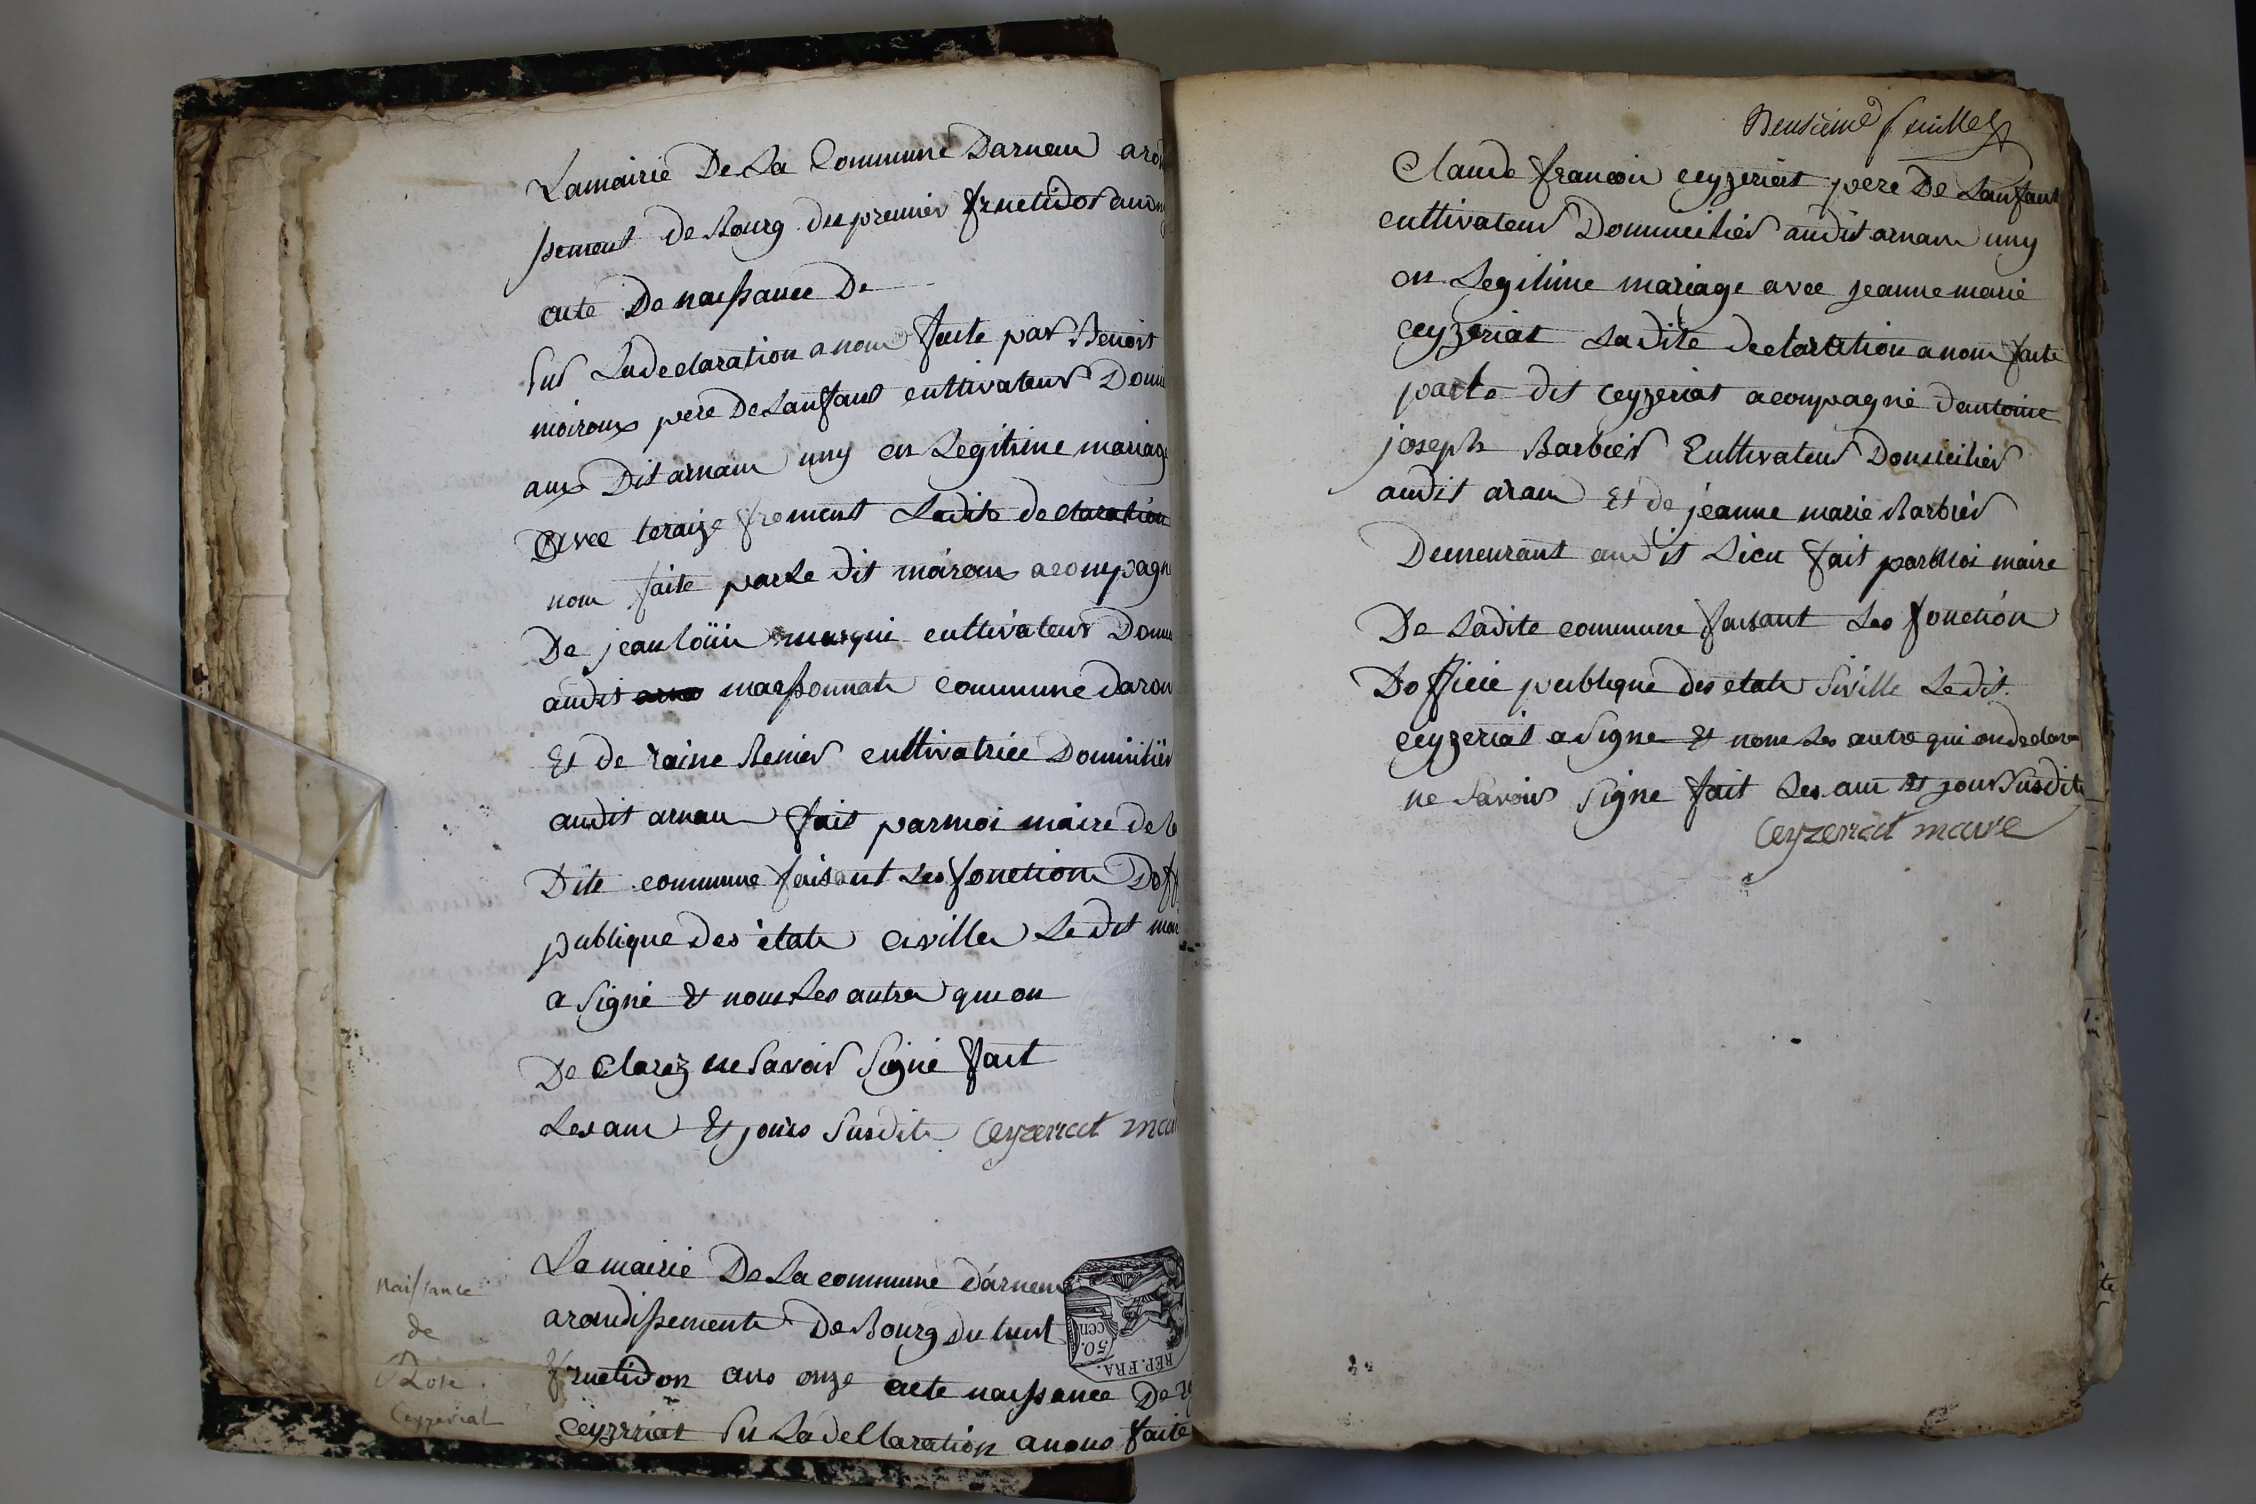 Lamairie De La Commune Darnau aron
ssement de Bourg du premier fructidor
acte De naissance De
sur La declaration a nous faite par Benoit
moiroux pere De Lanfant cultivateur Domi
aux Dit arnau uny en Legitime mariage
avec teraize froment Ladite declaration
nous faite par Le dit moiroux acompagn
De jean loüis marqui cultivateur Domi
audit massonnat commune
Et de raine Renier cultivatrice Domicilier
audit arnau fait par moi maire de la
Dite commune faisant Les fonction Doff
publique des états civilles Le dit moi
a signé Et nom Les autres que on
De Clarez ne Savoir Signé fait
Les ans Et jours Susdits Ceyzeriat mai
naissance
de
Rose
Ceyzeriat
La mairie De La commune d'arneau
arondissements De Bourg du huit
fructidor ans onze acte naissance De
Ceyzeriat Su La declaration a nous faite
REP. FRA.
50. cen
Deusieme feuillet
Claude francoi ceyzeriat pere De Lanfant
cultivateur Domicilier audit arnau uny
en Legitime mariage avec jeanne marie
ceyzeriat Ladite declartition a nous faite
par le dit Ceyzeriat acompagné dantoine
joseph Barbier Cultivateur Domicilier
audit arau Et de jeanne marie Barbier
Demeurant audit Lieu fait par Moi maire
De Ladite commune faisant Les fonction
Dofficie publique des etats Siville Le dit
ceyzeriat a Signe Et nom Les autre qui on declare
ne Savoir Signe fait Les ans Et jour Susdits
Ceyzeriat maire